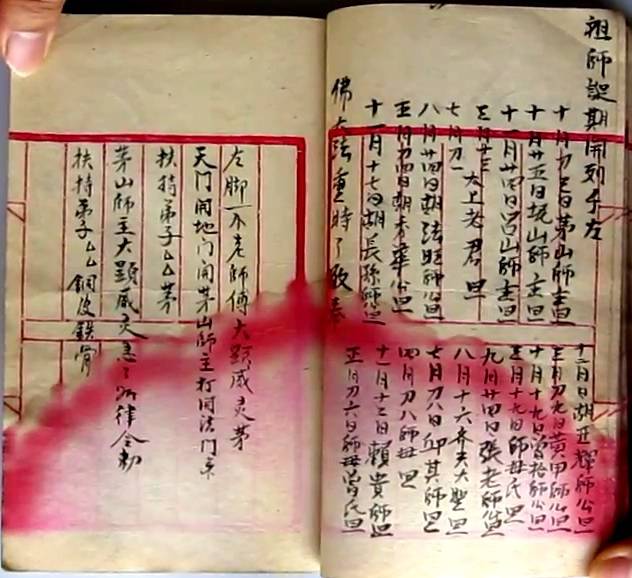 祖師誕期開列于左
十月初三日茅山師主旦
十月廿五日坭山師主旦
十一月廿四日呂山師主旦
三月廿三
太上老君旦
七月初一
八月廿四日胡法旺師公旦
五月初四日胡李華公旦
十一月十七日胡長孫師旦
佛大法重時了敬奉
十二月日胡亚耀師公旦
三月初九黄甲師公旦
十月十九曾拾師公旦
五月十九日師母氏旦
九月廿四日張老師旦
八月十六齐天大聖旦
七月初八日邱其師旦
四月初八師母旦
十一月十三日賴貴師旦
五月初六日師母曾氏旦
左脚一不老師傅大顕威灵茅
天门開地门開茅山師主打開法门
扶持弟子厶厶茅
茅山師主大顕威灵急々如律令勅
扶持弟子厶厶銅皮鉄骨